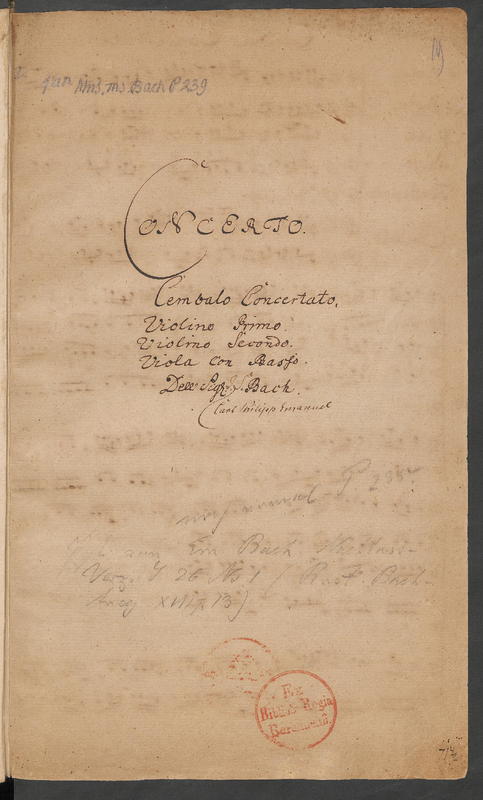 19
Mus. ms. Bach P 239
CONCERTO.
Cembalo Concertato,
Violino Primo.
Violino Secondo.
Viola con Basso.
Dell Sigr. Bach.
(Carl Philipp Emanuel
P 235
Em Bach
Verz. S 26 No 1 / Rust Bach-
XVII, p. 13)
Ex
Biblioth. Regia
Berolinensi.